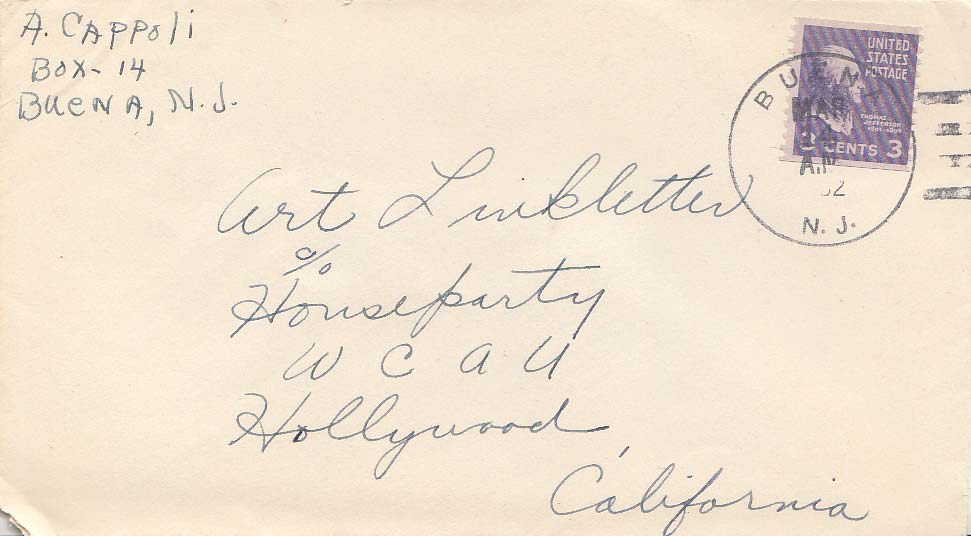 A. CAPPOli
BOX- 14
BUeNA, N.J.
UNITED
STATES
POSTAGE
THOMAS
JEFFERSON
3 CENTS 3
BUENA
MAR
A.M
N. J.
Art Linkletter
c/o
Houseparty
W C A U
Hollywood,
California